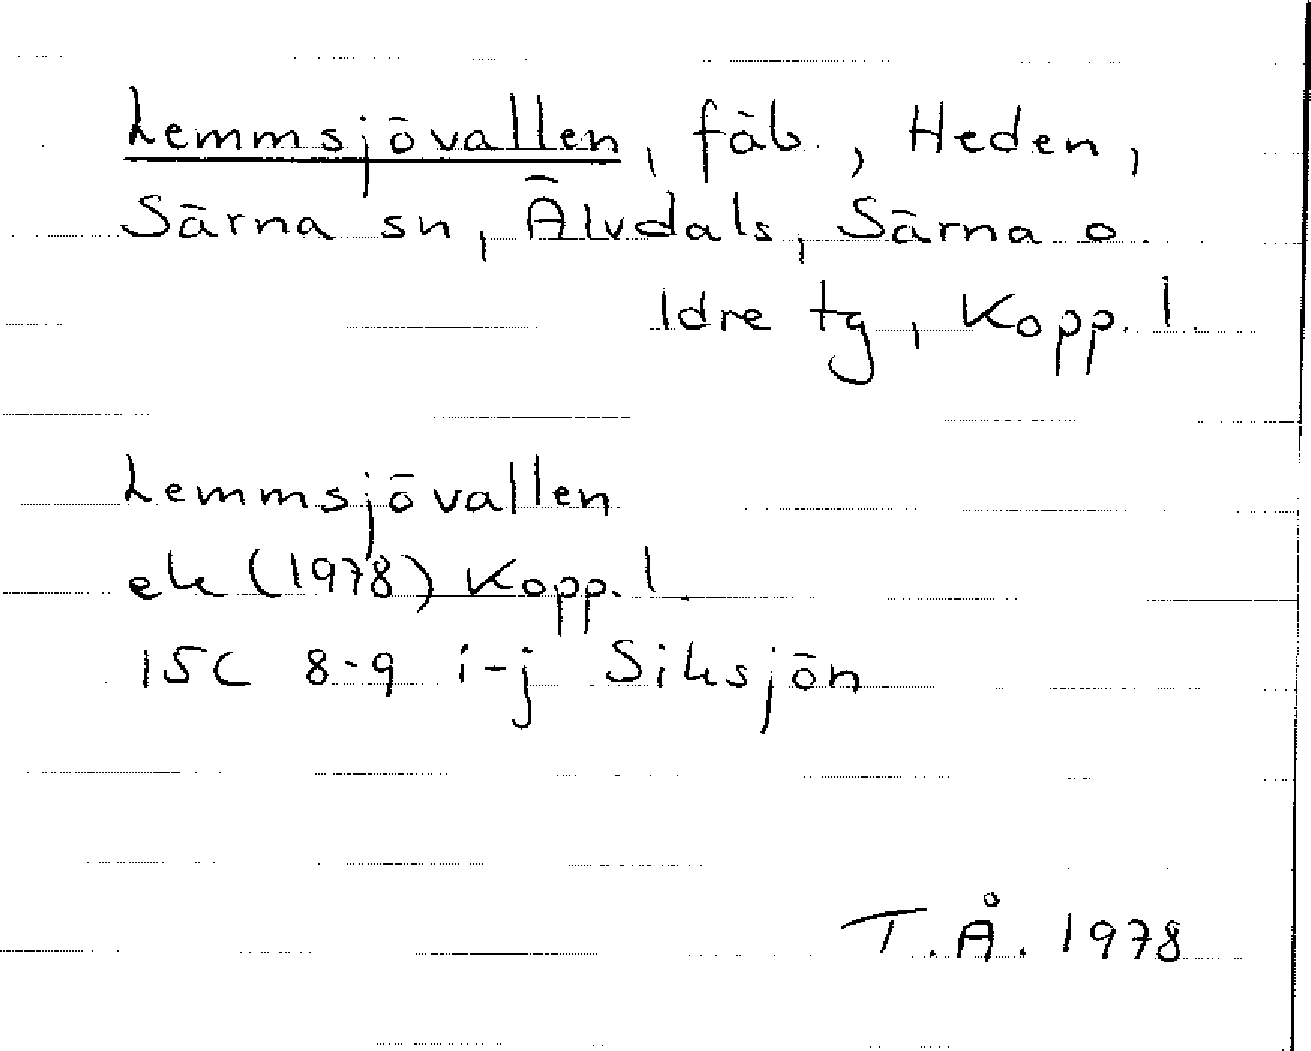 Lemmsjövallen, fäb., Heden,
Särna sn, Älvdals, Särna o.
Idre tg, Kopp. l.
Lemmsjövallen
ek (1978) Kopp. l.
15C 8-9 i-j Siksjön
T.Å. 1978